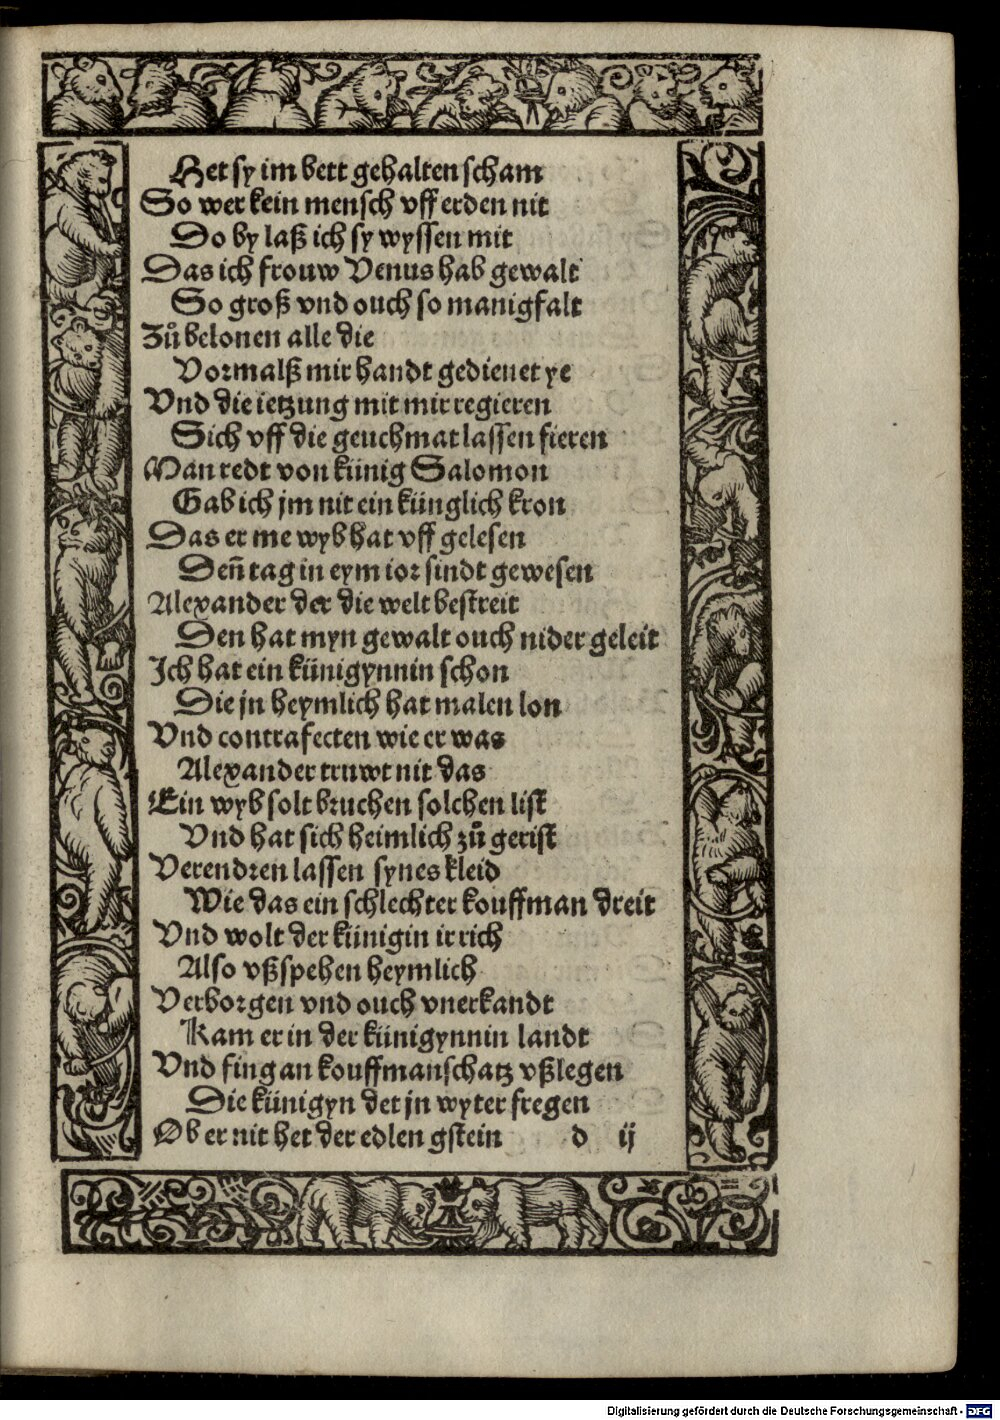 Het sy im bett gehalten scham
So wer kein mensch vff erden nit
Do by laß ich sy wyssen mit
Das ich frouw Venus hab gewalt
So groß vnd ouch so manigfalt
Zů belonen alle die
Vormalß mir handt gedienet ye
Vnd die ietzung mit mir regieren
Sich vff die geuchmat lassen fieren
Man redt von künig Salomon
Gab ich jm nit ein künglich kron
Das er me wyb hat vff gelesen
Deñ tag in eym ior sindt gewesen
Alexander der die welt bestreit
Den hat myn gewalt ouch nider geleit
Ich hat ein künigynnin schon
Die jn heymlich hat malen lon
Vnd contrafecten wie er was
Alexander truwt nit das
Ein wyb solt bruchen solchen list
Vnd hat sich heimlich zů gerist
Verendren lassen synes kleid
Wie das ein schlechter kouffman dreit
Vnd wolt der künigin ir rich
Also vßspehen heymlich
Verborgen vnd ouch vnerkandt
Kam er in der künigynnin landt
Vnd fing an kouffmanschatz vßlegen
Die künigyn det jn wyter fregen
Ob er nit het der edlen gstein d ij
Digitalisierung gefördert durch die Deutsche Forschungsgemeinschaft - DFG